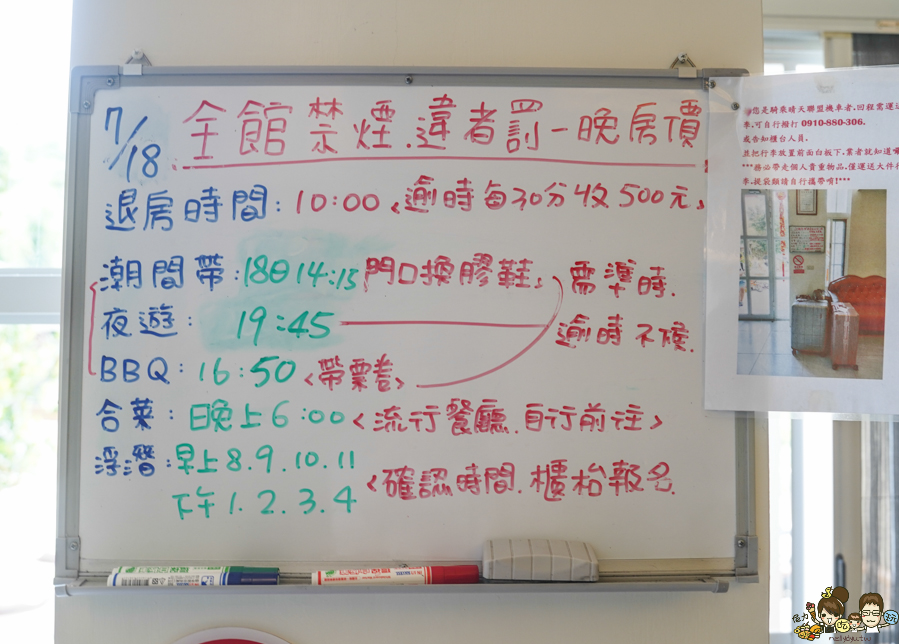 7/18 全館禁煙.違者罰一晚房價
退房時間:10:00〈逾時每30分收500元〉
潮間帶:18日14:15門口換膠鞋〉需準時.
夜遊: 19:45 逾時不候.
BBQ:16:50〈帶票卷〉
合菜:日晚上6:00〈流行餐廳.自行前往〉
浮潛:早上8.9.10.11
下午1.2.3.4
〈確認時間.櫃枱報名.
您是騎乘晴天聯盟機車者,回程需運送
李,可自行撥打 0910-880-306.
或告知櫃台人員.
並把行李放置前面白板下,業者就知道
***務必帶走個人貴重物品,僅運送大件行
李,提袋類請自行攜帶唷!***